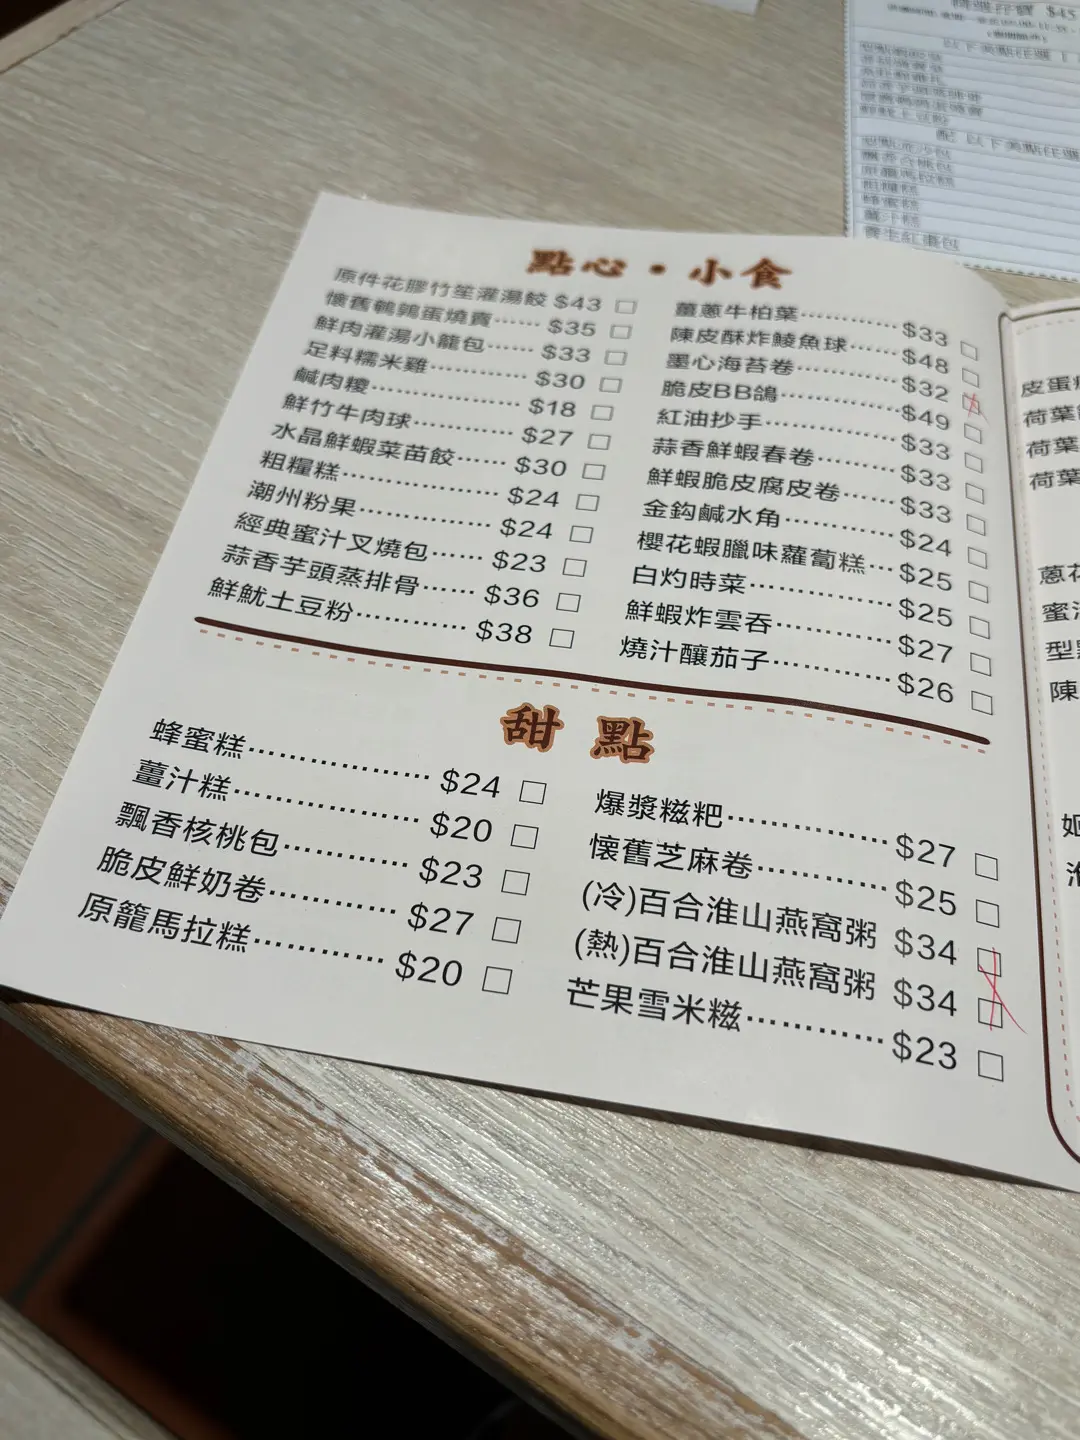 點心・小食
原件花膠竹笙灌湯餃 $43 □
懷舊鵪鶉蛋燒賣…… $35 □
鮮肉灌湯小籠包…… $33 □
足料糯米雞………… $30 □
鹹肉糭……………… $18 □
鮮竹牛肉球………… $27 □
水晶鮮蝦菜苗餃…… $30 □
粗糧糕……………… $24 □
潮州粉果…………… $24 □
經典蜜汁叉燒包…… $23 □
蒜香芋頭蒸排骨…… $36 □
鮮魷土豆粉………… $38 □
薑蔥牛柏葉………… $33 □
陳皮酥炸鯪魚球…… $48 □
墨心海苔卷………… $32 □
脆皮BB鴿………… $49 □
紅油抄手…………… $33 □
蒜香鮮蝦春卷……… $33 □
鮮蝦脆皮腐皮卷…… $33 □
金鈎鹹水角………… $24 □
櫻花蝦臘味蘿蔔糕… $25 □
白灼時菜…………… $25 □
鮮蝦炸雲吞………… $27 □
燒汁釀茄子………… $26 □
甜點
蜂蜜糕……………… $24 □
薑汁糕……………… $20 □
飄香核桃包………… $23 □
脆皮鮮奶卷………… $27 □
原籠馬拉糕………… $20 □
爆漿糍粑…………… $27 □
懷舊芝麻卷………… $25 □
(冷)百合淮山燕窩粥 $34 □
(熱)百合淮山燕窩粥 $34 □
芒果雪米糍………… $23 □
皮蛋
荷葉
荷葉
荷葉
蔥花
蜜汁
陳
$45
以下美點任選
配 以下美點任選
蜂蜜糕
薑汁糕
養生紅棗包